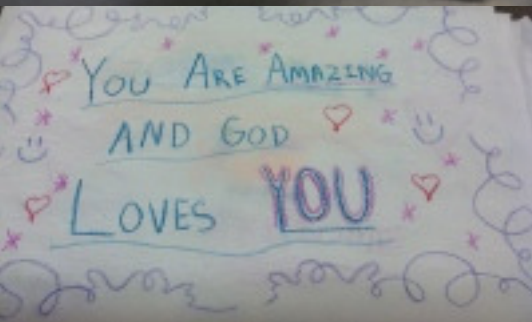 You Are Amazing
AND GOD
LOVES YOU